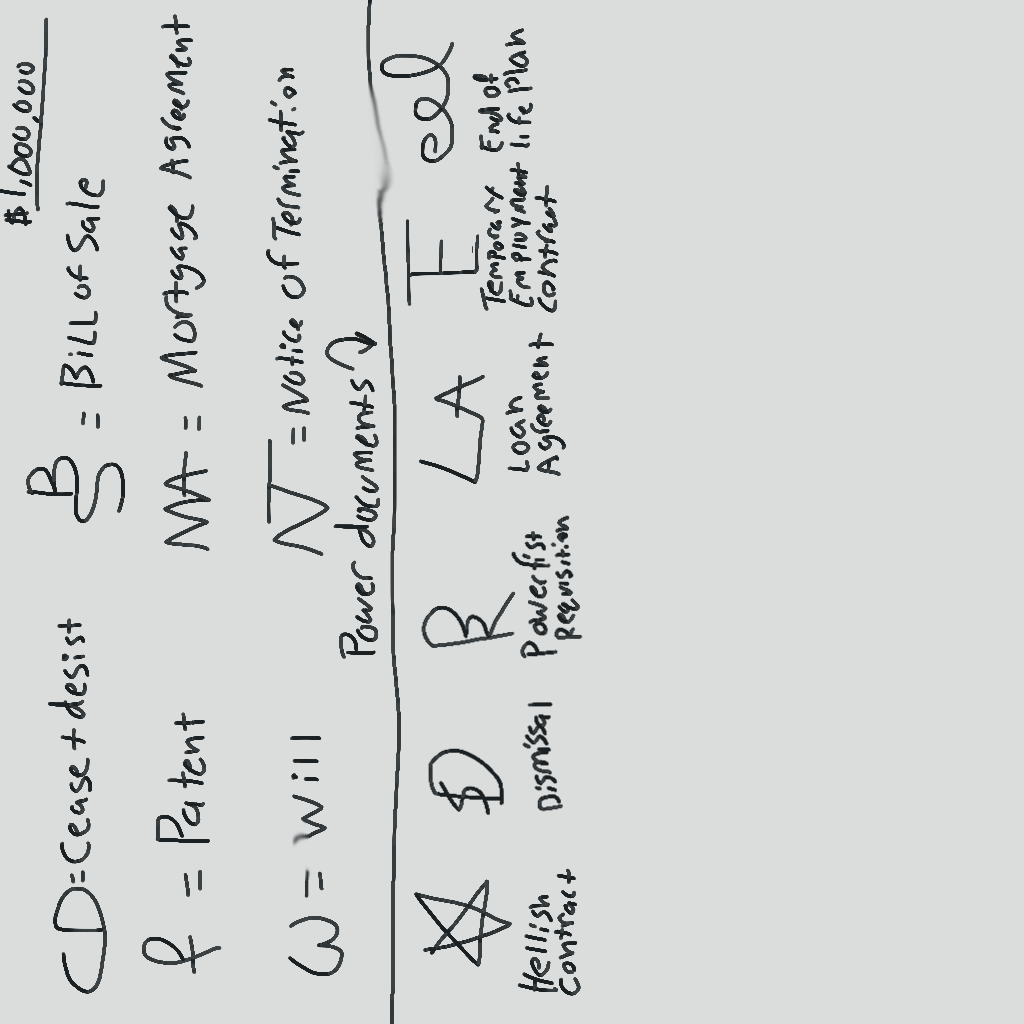 $1,000,000
CD = Cease + desist
BS = Bill of Sale
P = Patent
MA = Mortgage Agreement
W = Will
NT = Notice of Termination
Power documents
D
R
LA
TE
eol
Hellish Contract
Dismissal
Powerfist Requisition
Loan Agreement
Temporary Employment Contract
End of life Plan